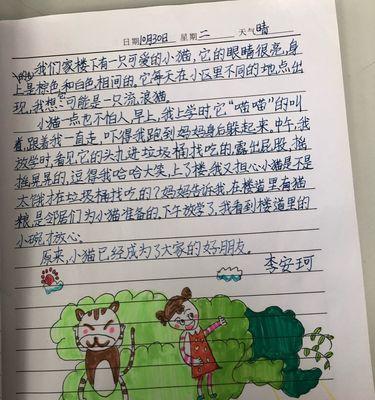 日期10月30日 星期二 天气晴
我们家楼下有一只可爱的小猫，它的眼睛很亮，身
上是棕色和白色相间的。它每天在小区里不同的地点出
现，我想可能是一只流浪猫。
小猫一点也不怕人，早上，我上学时它“喵喵”的叫
着，跟着我一直走，吓得我跑到妈妈身后躲起来。中午，我
放学时，看见它的头扎进垃圾桶找吃的，露出屁股，摇
摇晃晃的，逗得我哈哈大笑，上了楼，我又担心小猫是不是
太饿才在垃圾桶找吃的？妈妈告诉我，在楼道里有猫
粮，是邻居们为小猫准备的，下午放学了，我看到楼道里的
小碗才放心。
原来，小猫已经成为了大家的好朋友。
李安珂